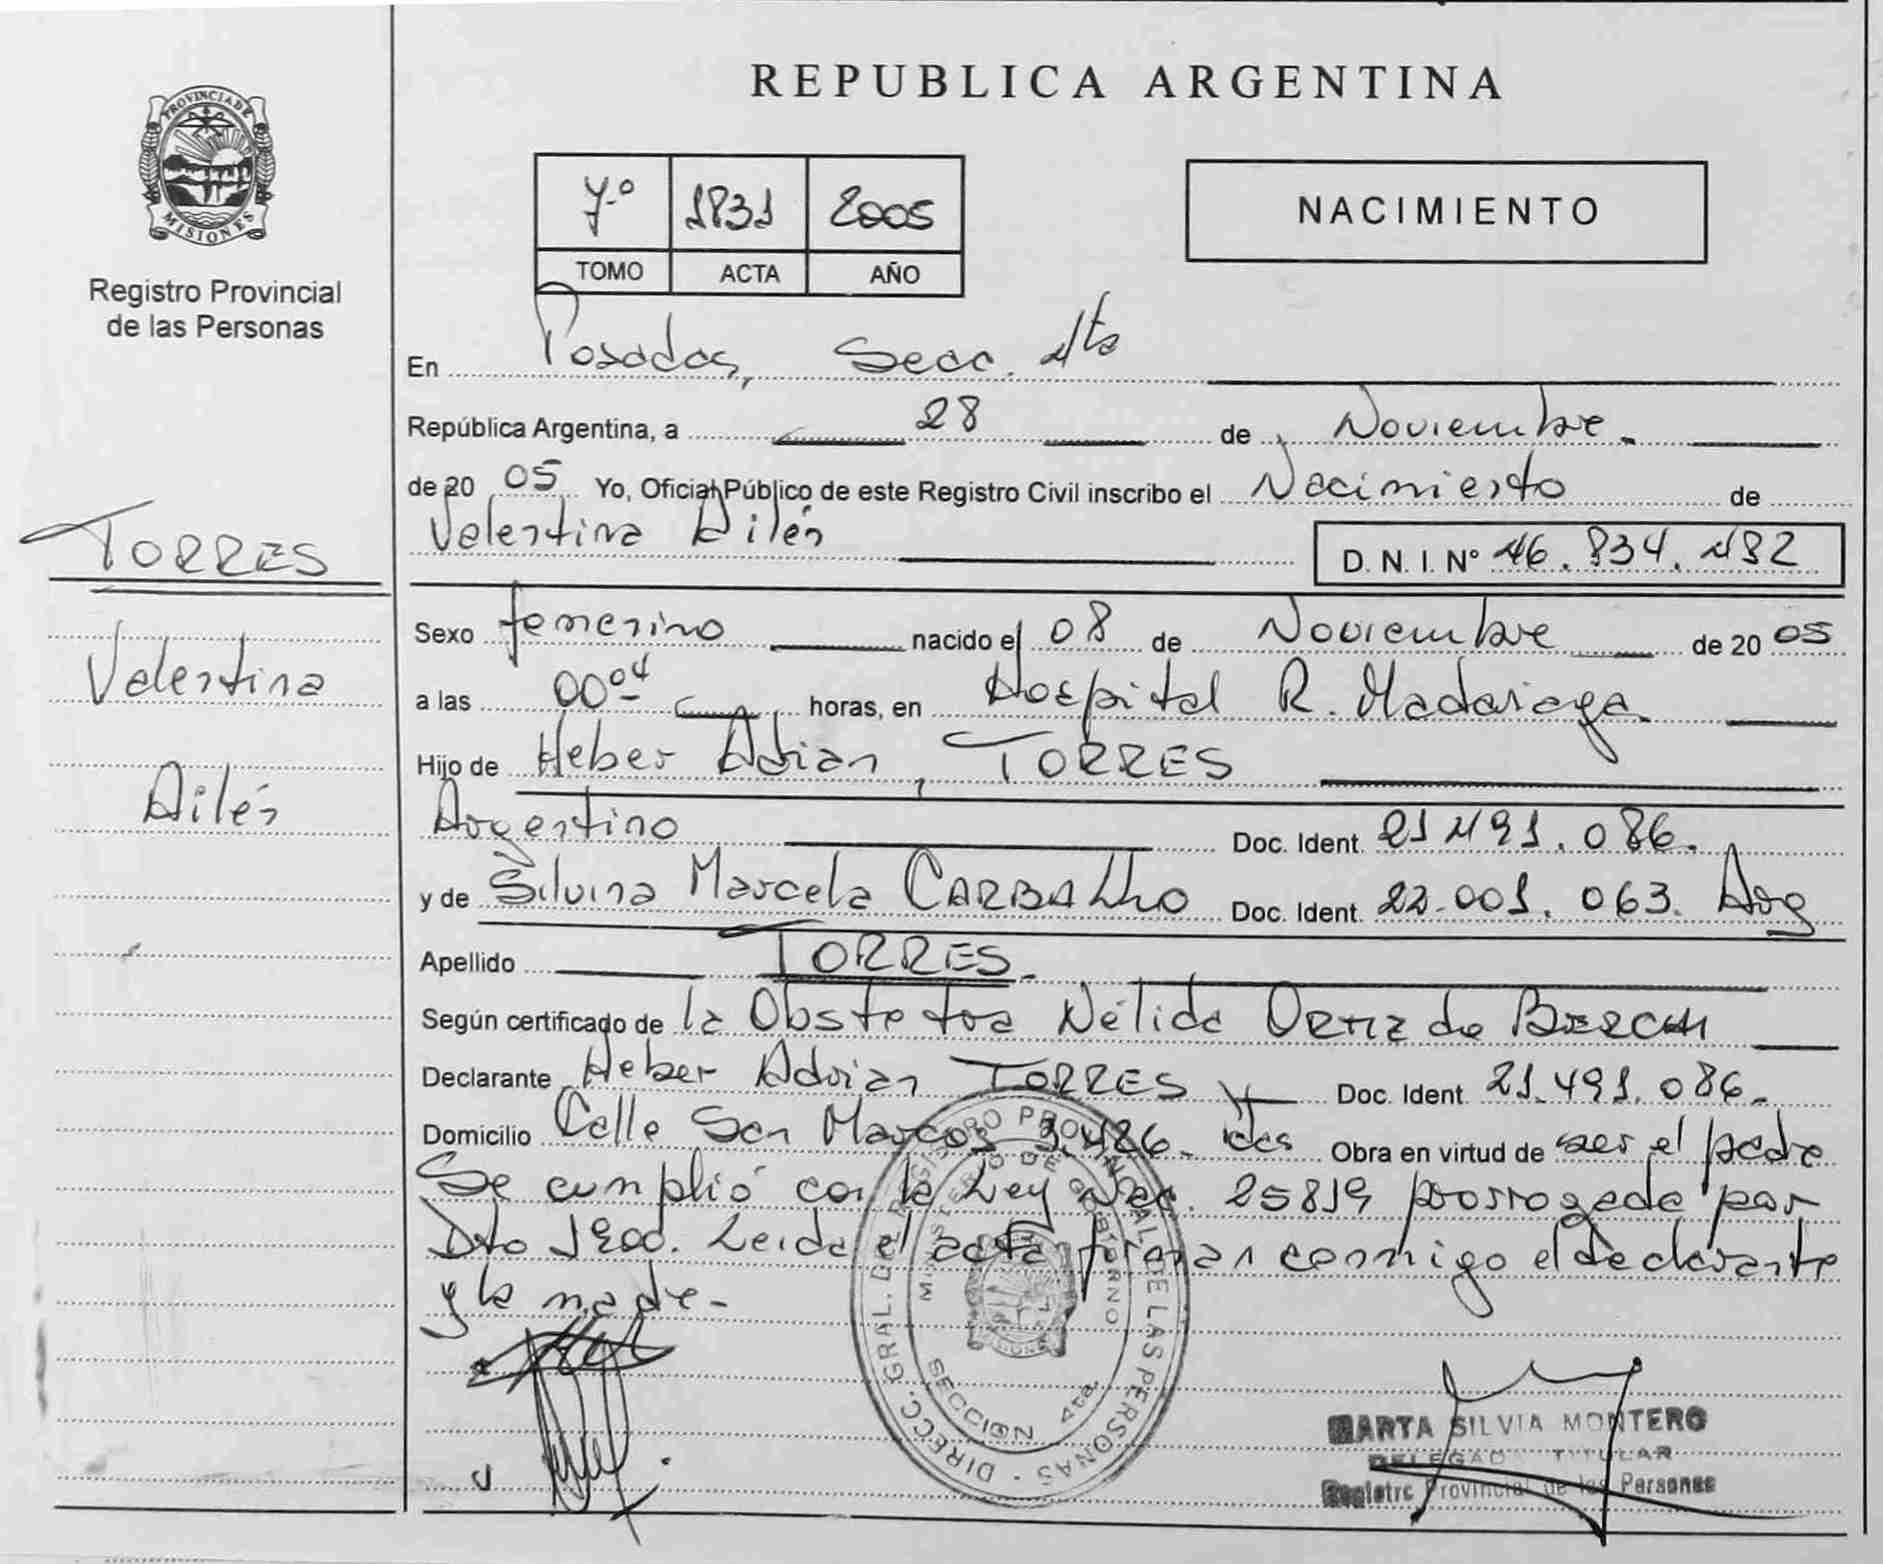 PROVINCIA DE
MISIONES
Registro Provincial
de las Personas
TORRES
Valentina
Ailén
REPUBLICA ARGENTINA
7º 1831 2005
TOMO ACTA AÑO
NACIMIENTO
En Posadas, Secc. 4ta
República Argentina, a 28 de Noviembre.
de 20 05 Yo, Oficial Público de este Registro Civil inscribo el Nacimiento de
Valentina Ailén
D. N. I. Nº 46.834.482
Sexo femenino nacido el 08 de Noviembre de 20 05
a las 00 04 horas, en Hospital R. Madariaga.
Hijo de Heber Adrian, TORRES
Argentino Doc. Ident. 21.491.086.
y de Silvina Marcela CARBALLO Doc. Ident. 22.001.063. Arg
Apellido TORRES.
Según certificado de la Obstetra Nélida Ortiz de
Declarante Heber Adrian TORRES Doc. Ident. 21.491.086.
Domicilio Calle San Marcos 3.486. Obra en virtud de ser el padre
Se cumplió con la Ley Nac. 25819 prorrogada por
Dto Leida el acta firman conmigo el declarante
y la madre.
DIRECC. GRAL. DE REGISTRO PROVINCIAL DE LAS PERSONAS
MINISTERIO DE GOBIERNO
SECCION 4ta.
MARTA SILVIA MONTERO
DELEGADA TITULAR
Registro Provincial de las Personas